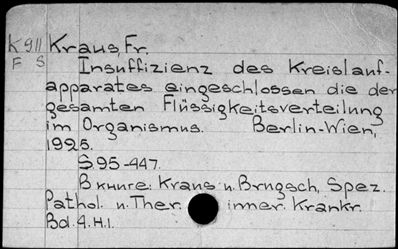 K 911 Kraus, Fr.
F S Insuffizienz des Kreislauf-
apparates eingeschlossen die der
gesamten Flüssigkeitsverteilung
im Organismus. Berlin-Wien,
1925.
S 95-447.
В книге: Kraus u. Brugsch, Spez.
Pathol. u. Ther. inner. Krankr.
Bd. 4. H.1.